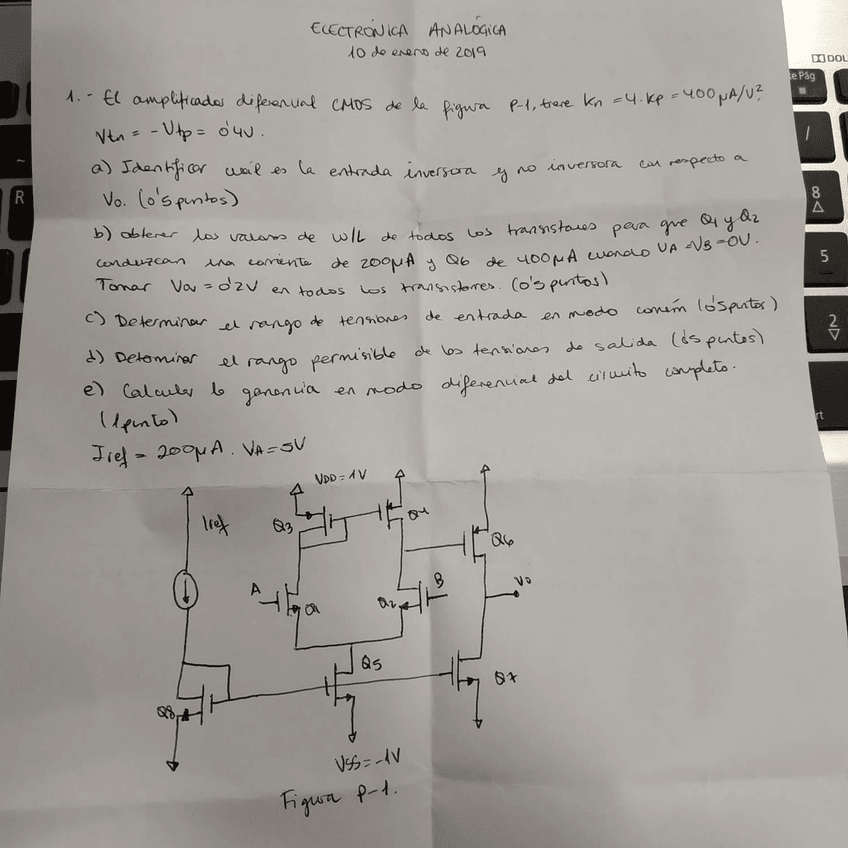 ELECTRÓNICA ANALÓGICA
10 de enero de 2019
1.- El amplificador diferencial CMOS de la figura P-1, tiene Kn = 4·Kp = 400 μA/V².
Vtn = -Vtp = 0'4V.
a) Identificar cuál es la entrada inversora y no inversora con respecto a
Vo. (0'5 puntos)
b) Obtener los valores de W/L de todos los transistores para que Q1 y Q2
conduzcan una corriente de 200μA y Q6 de 400μA cuando VA = VB = 0V.
Tomar Vov = 0'2V en todos los transistores. (0'5 puntos)
c) Determinar el rango de tensiones de entrada en modo común (0'5 puntos)
d) Determinar el rango permisible de las tensiones de salida (0'5 puntos)
e) Calcular la ganancia en modo diferencial del circuito completo.
(1 punto)
Iref = 200μA. VA = 5V
VDD = 1V
Iref
Q3
Q4
Q6
A
Q1
Q2
B
Vo
Q5
Q7
Q8
VSS = -1V
Figura P-1.
R
~
DOL
e Pág
/
8
5
2
rt